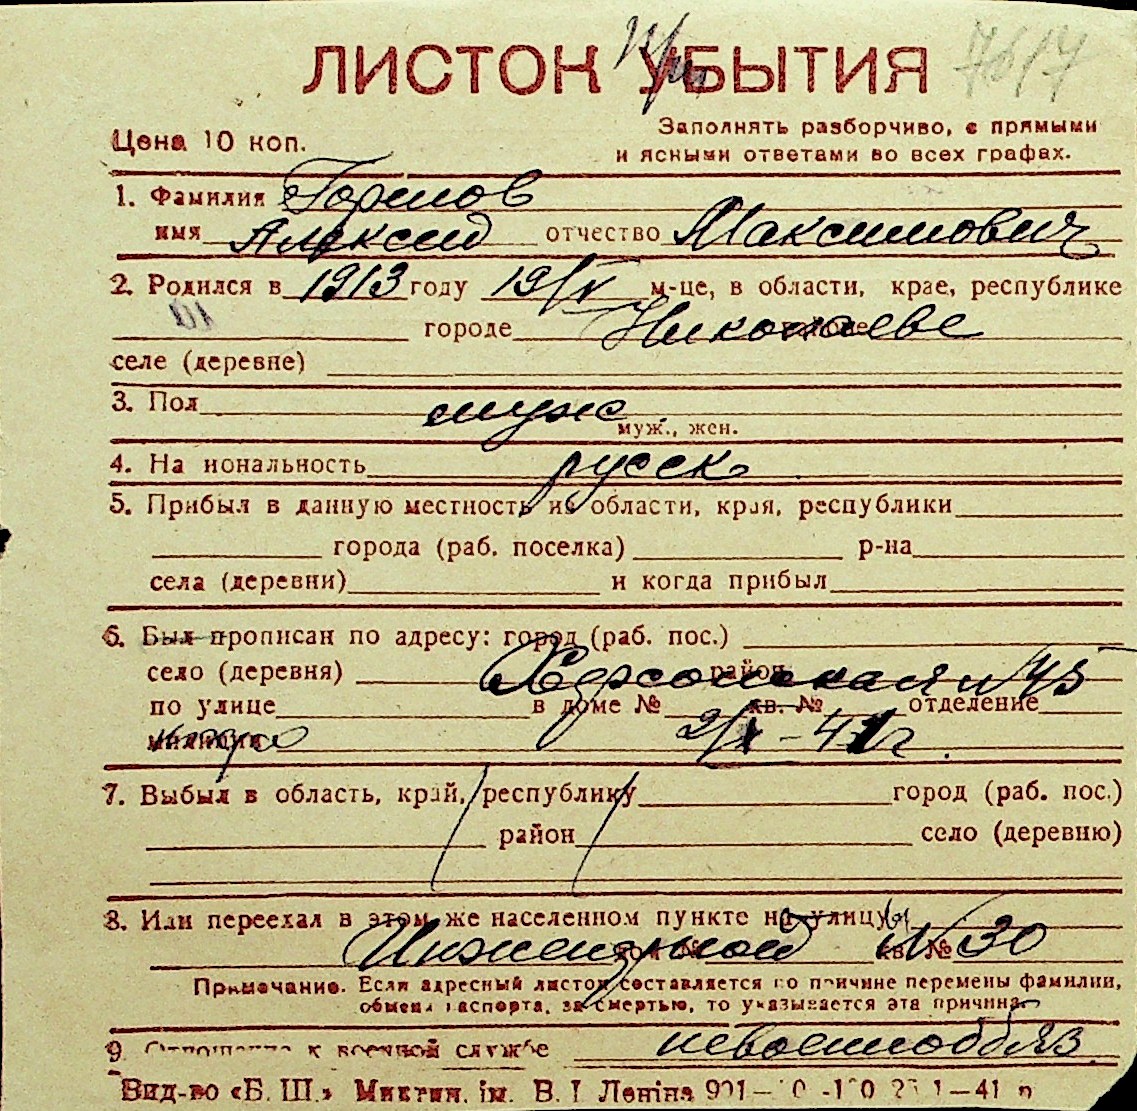 7617
ЛИСТОК УБЫТИЯ
Цена 10 коп.
Заполнять разборчиво, с прямыми
и ясными ответами во всех графах.
1. Фамилия Горшов
имя Алексей отчество Максимович
2. Родился в 1913 году 19/V м-це, в области, крае, республике
городе Николаеве
селе (деревне)
3. Пол муж
муж., жен.
4. На иональность русск
5. Прибыл в данную местность из области, края, республики
города (раб. поселка) р-на
села (деревни) и когда прибыл
6. Был прописан по адресу: город (раб. пос.)
село (деревня) район
Херсонская № 45
по улице в доме № кв. № отделение
милиции 2/X-41 г.
7. Выбыл в область, край, республику город (раб. пос.)
район село (деревню)
8. Или переехал в этом же населенном пункте на улицу
Инженерной № 30
дом № кв. №
Примечание. Если адресный листок составляется по причине перемены фамилии,
обмена паспорта, за смертью, то указывается эта причина.
9. Отношение к военной службе невоеннообяз.
Вид-во «Б. Ш.» Микпин. ім. В. І Леніна